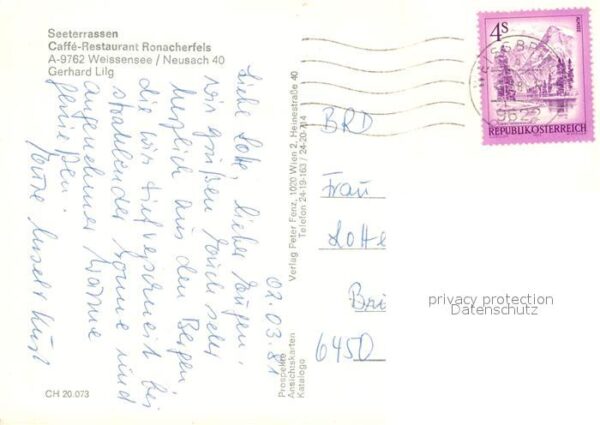 Seeterrassen
Caffé-Restaurant Ronacherfels
A-9762 Weissensee / Neusach 40
Gerhard Lilg
Liebe Lotte, lieber Eugen.
wir grüßen Euch sehr
herzlich aus den Bergen,
die wir tief verschneit bei
strahlender Sonne und
angenehmer Wärme
genießen.
02.03.81
CH 20.073
Prospekte
Ansichtskarten
Kataloge
Verlag Peter Fenz, 1020 Wien 2, Heinestraße 40
Telefon 24-19-163 / 24-20-714
4S
ALMSEE
9622
REPUBLIK ÖSTERREICH
BRD
Frau
Lotte
6450
privacy protection
Datenschutz